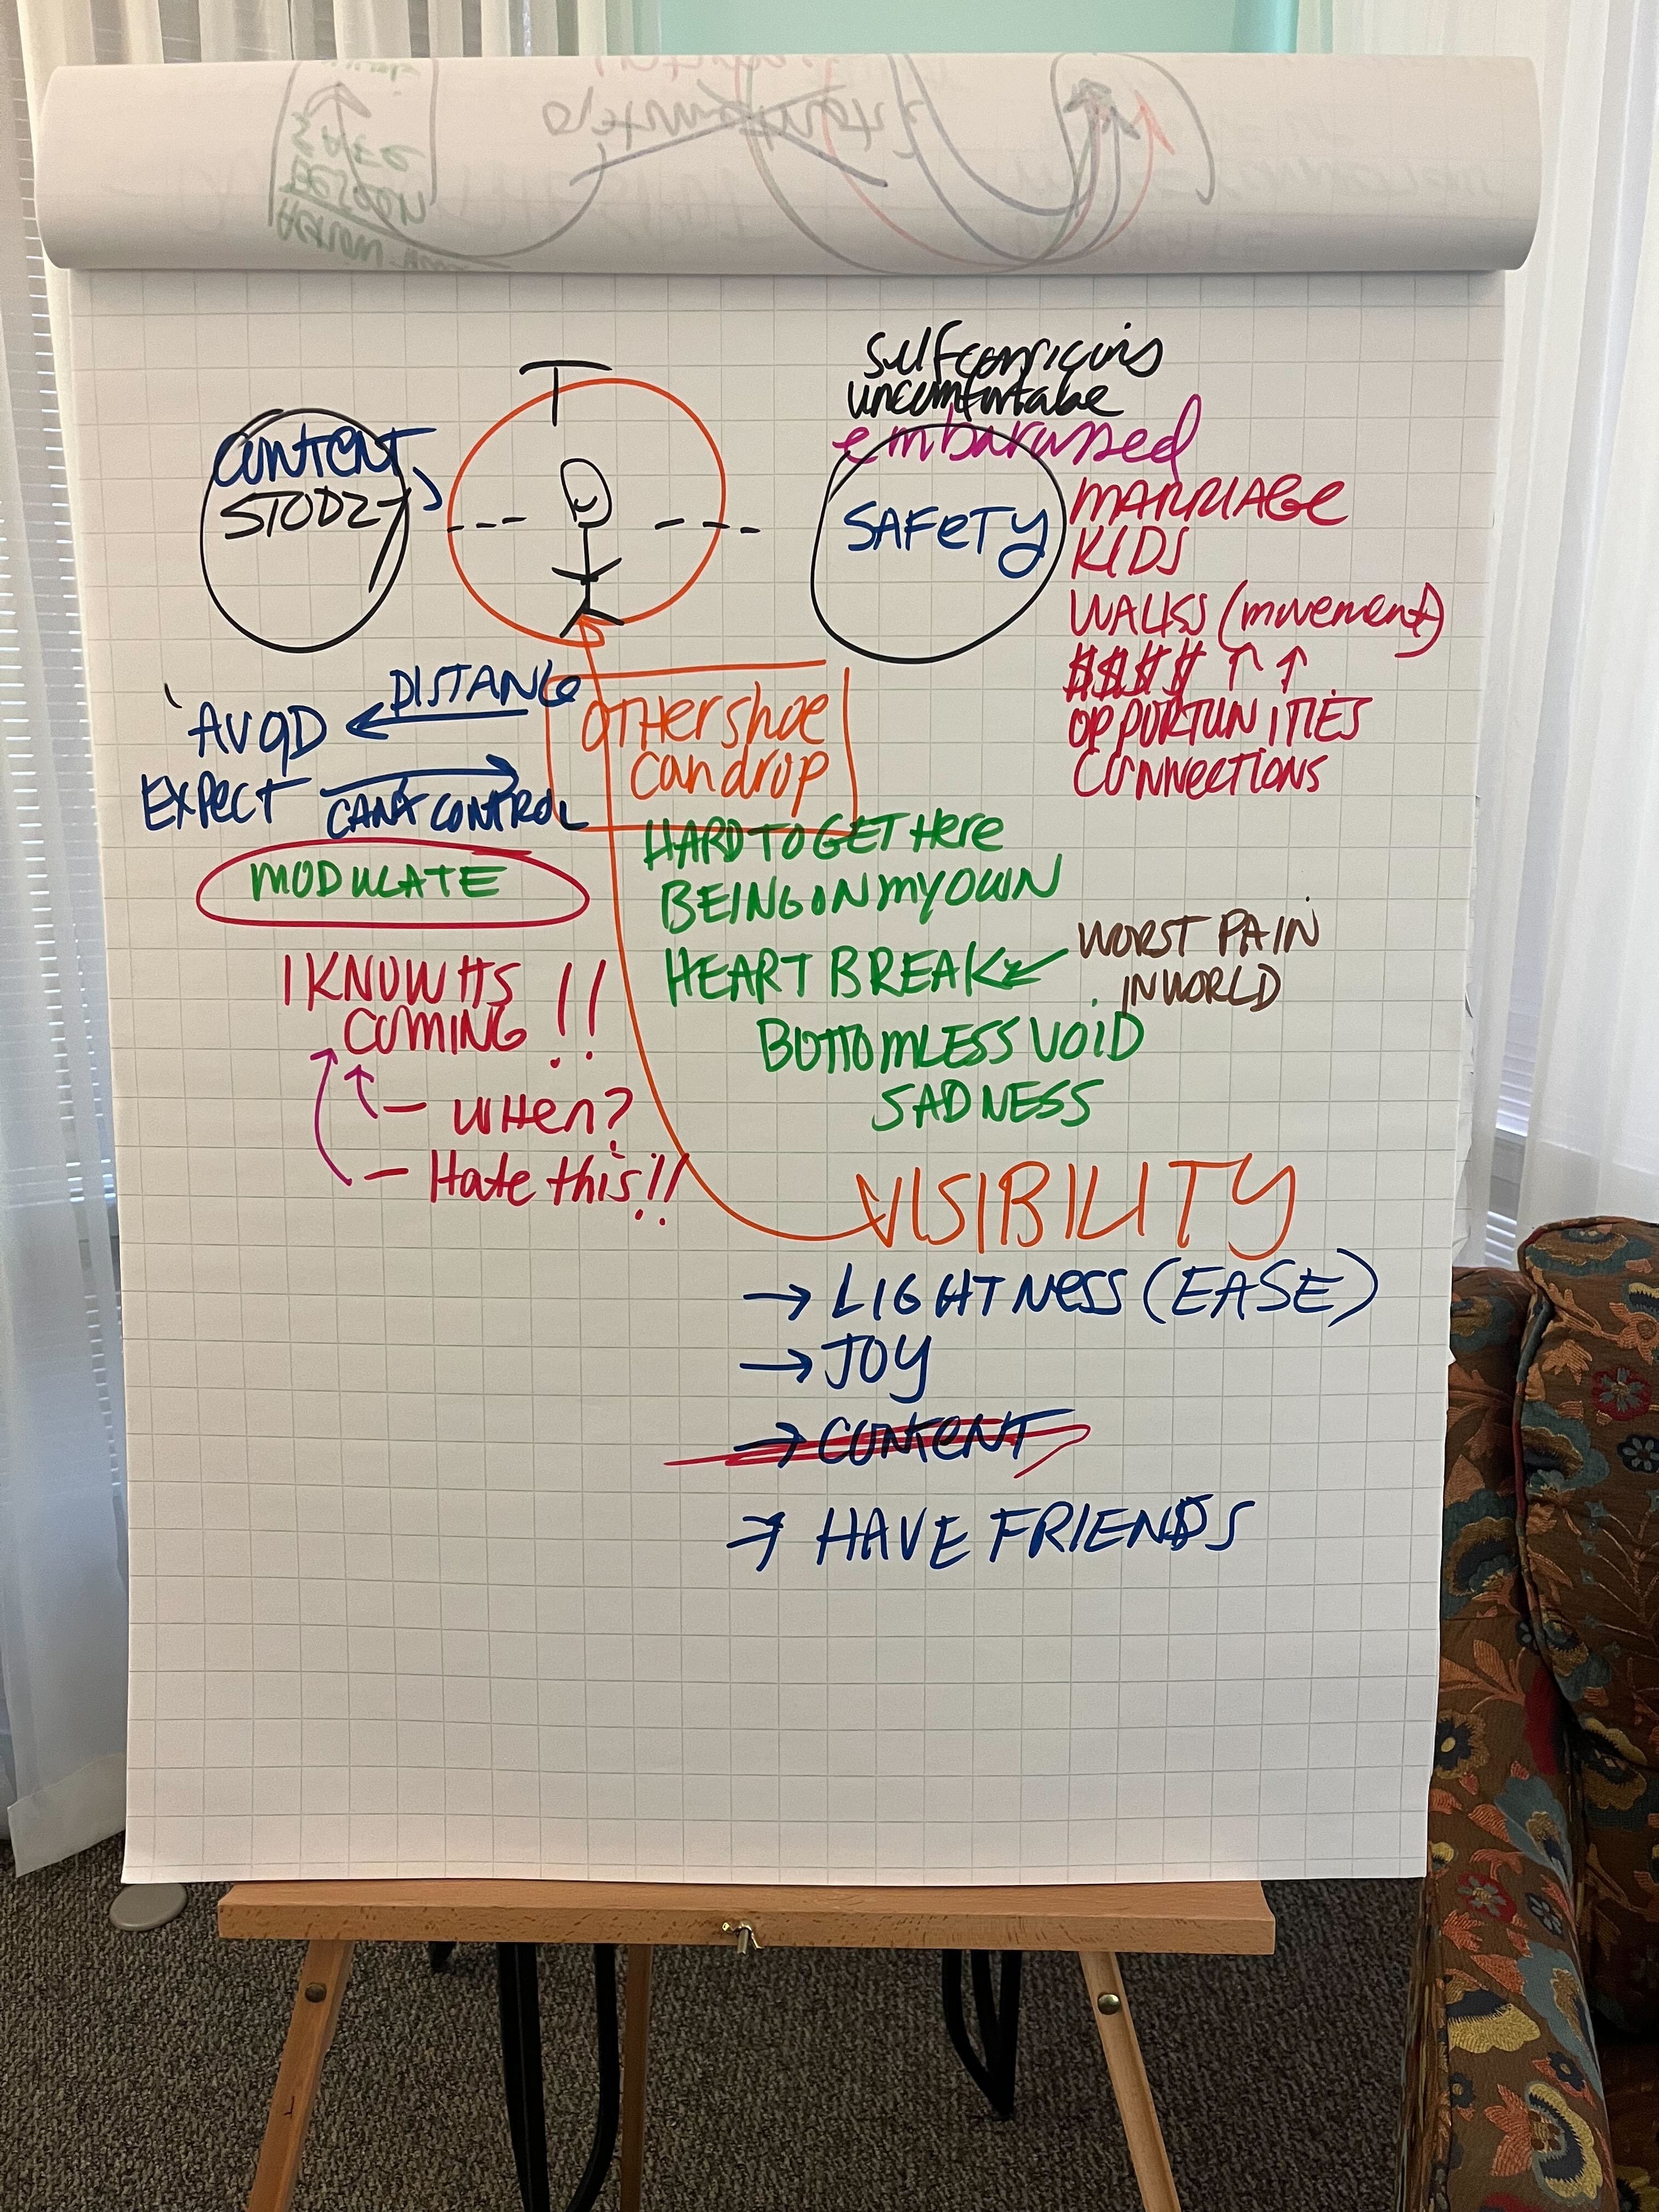 T
self conscious
uncomfortable
embarassed
CONTENT
STORY
SAFETY
MARRIAGE
KIDS
WALKS (movement)
$$$$ ↑ ↑
OPPORTUNITIES
CONNECTIONS
DISTANCE
AVOID
EXPECT
CAN'T CONTROL
OTHER shoe
can drop
MODULATE
HARD TO GET Here
BEING ON MY OWN
HEART BREAK
WORST PAIN
IN WORLD
BOTTOMLESS VOID
SADNESS
I KNOW ITS
COMING !!
- WHen?
- Hate this!!
VISIBILITY
→ LIGHTNESS (EASE)
→ JOY
→ CONTENT
→ HAVE FRIENDS